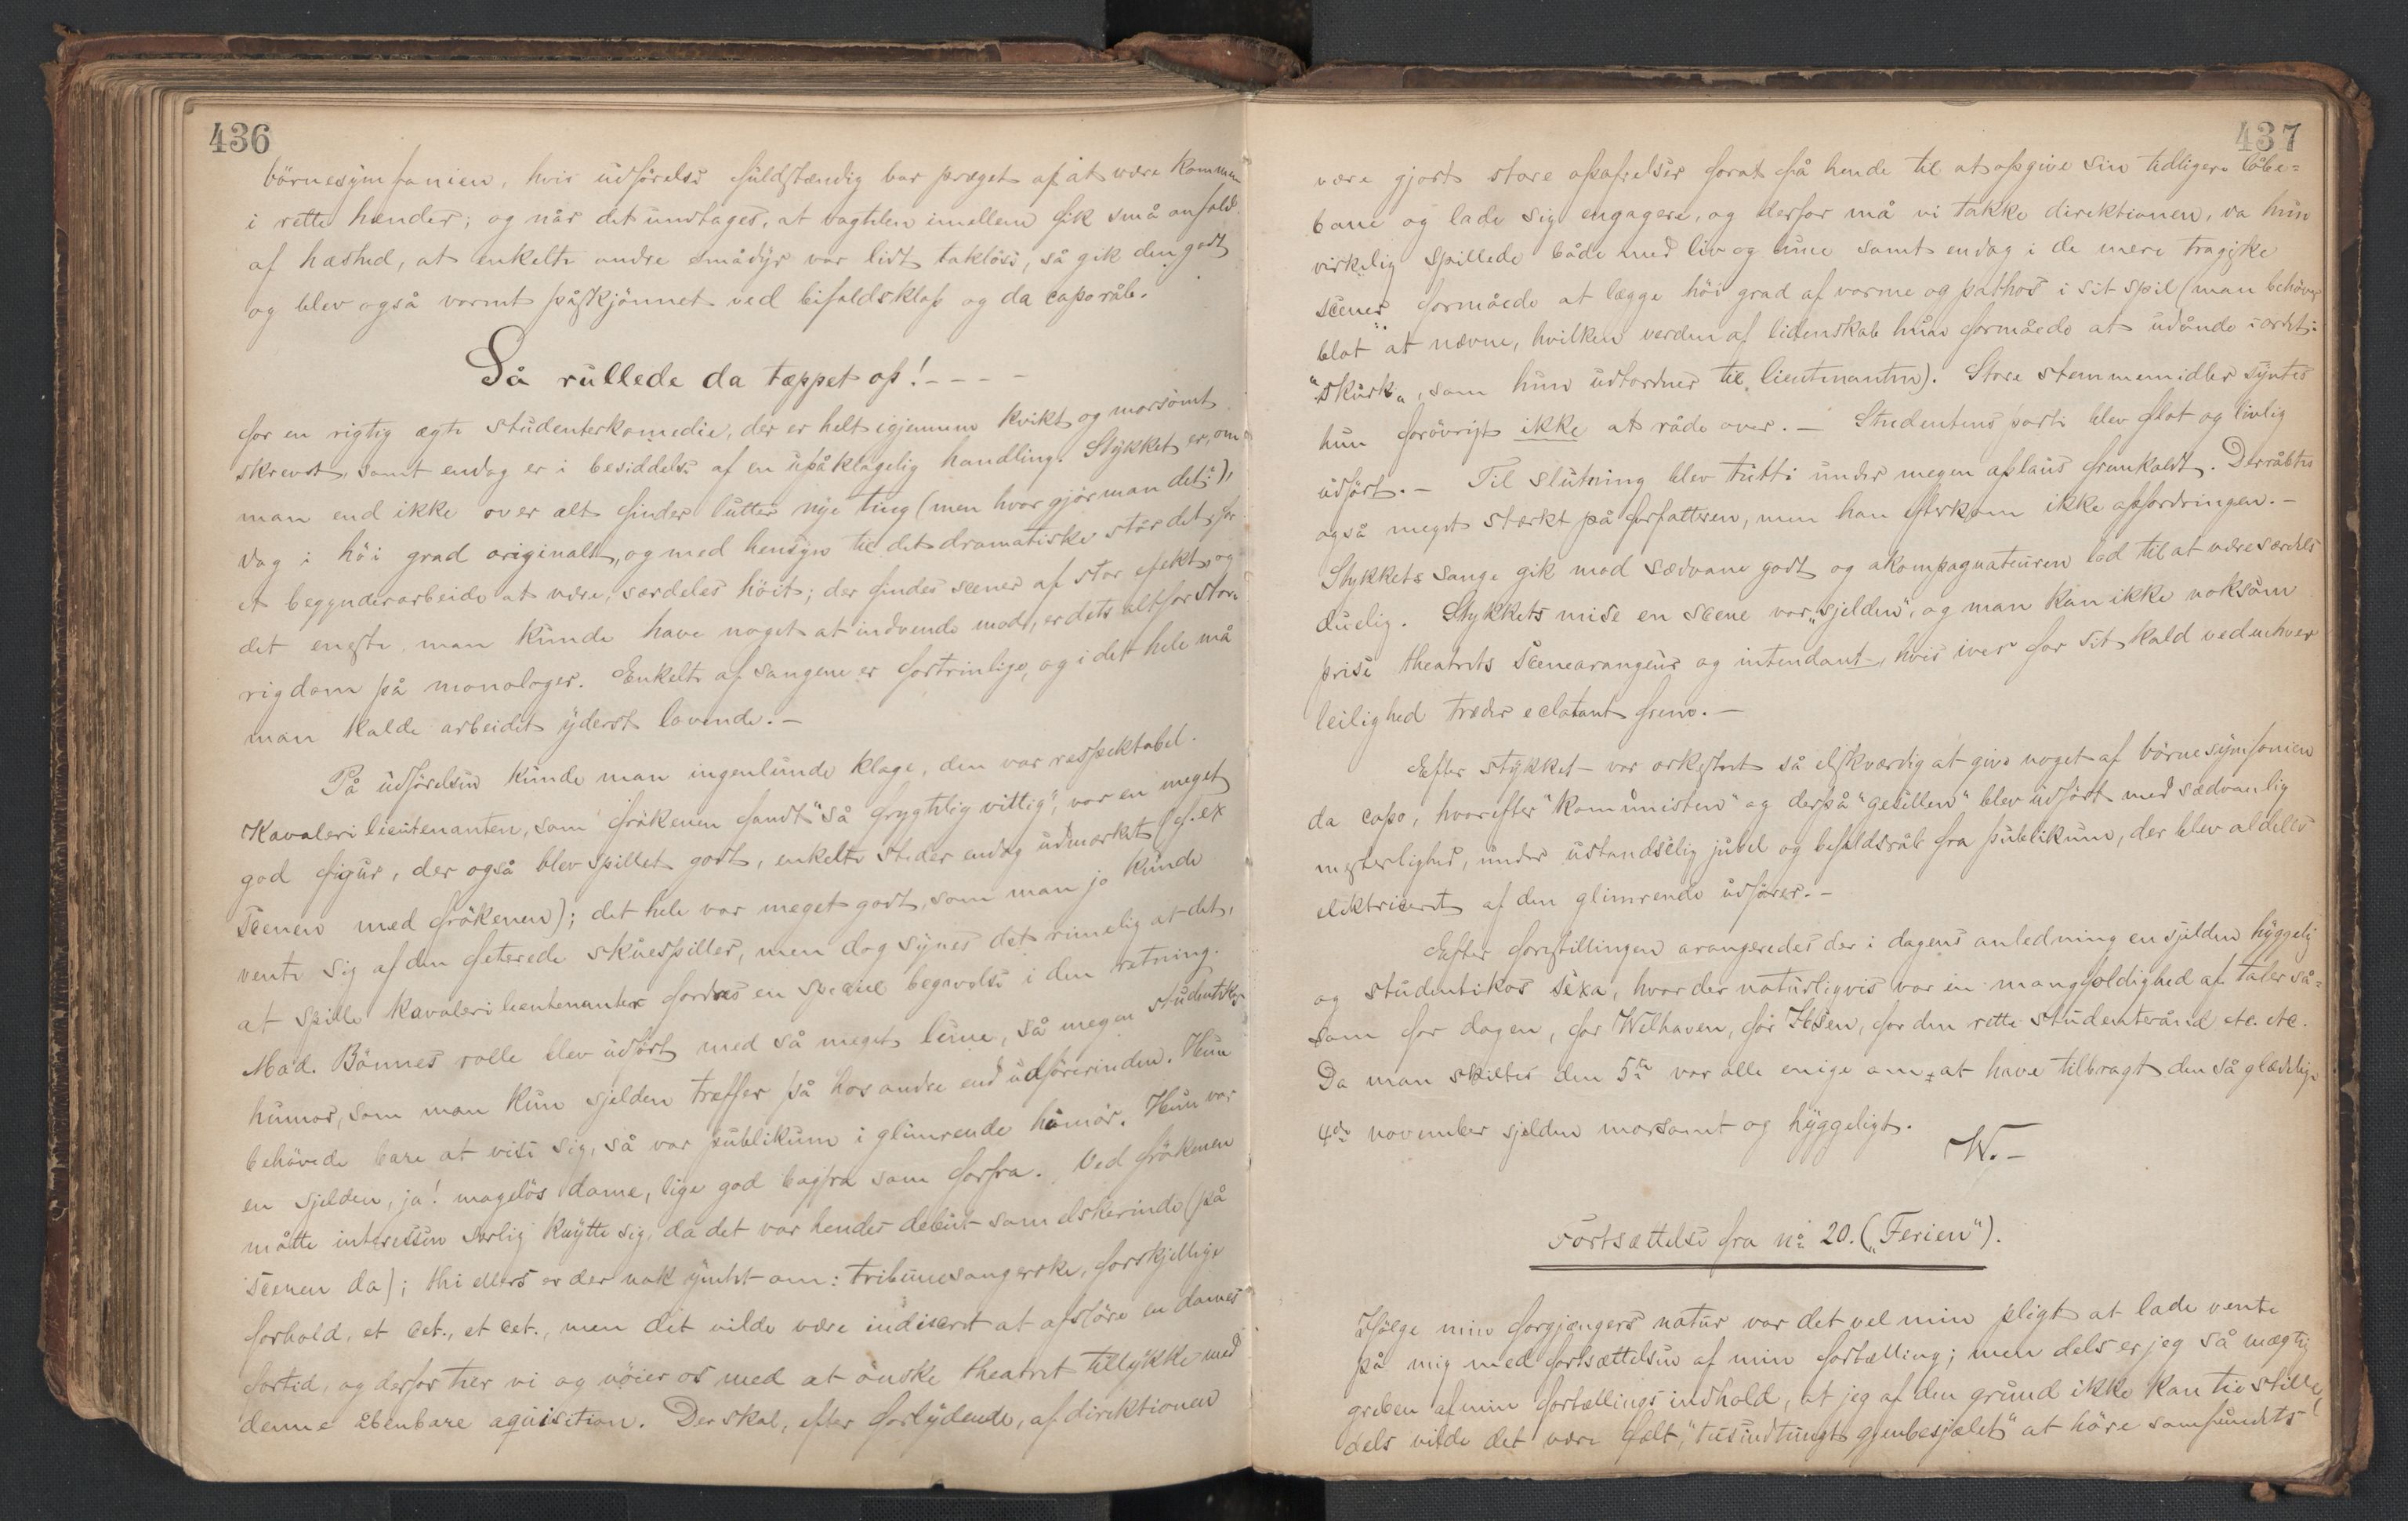 436
börnesymfonien, hvis udförelse fuldstændig bar præget af at være kommen
i rette hænder; og når det undtages, at vagtelen imellem fik små anfald
af hæshed, at enkelte andre smådyr var lidt taktlöse, så gik den godt
og blev også varmt påskjönnet ved bifaldsklap og da caporåb.
Så rullede da tæppet op! - - - -
for en rigtig ægte studenterkomedie, der er helt igjennem kvikt og morsomt
skrevet, samt endog er i besiddelse af en upåklagelig handling. Stykket er, om
man end ikke over alt finder lutter nye ting (men hvor gjör man det?),
dog i höi grad originalt, og med hensyn til det dramatiske står det, for
et begynderarbeide at være, særdeles höit; der findes scener af stor efekt, og
det eneste, man kunde have noget at indvende mod, er dets altfor store
rigdom på monologer. Enkelte af sangene er fortrinlige, og i det hele må
man kalde arbeidet yderst lovende. –
På udförelsen kunde man ingenlunde klage, den var respektabel.
Kavalerilieutenanten, som frökenen fandt "så frygtelig vittig", var en meget
god figur, der også blev spillet godt, enkelte steder endog udmærket (f. ex
scenen med frökenen); det hele var meget godt, som man jo kunde
vente sig af den feterede skuespiller, men dog synes det rimelig at det,
at spille kavalerilieutenanter fordres en speciel begavelse i den retning.
Mad. Bönnes rolle blev udfört med så meget lune, så megen studentikos
humor, som man kun sjelden træffer på hos andre end udförerinden. Hun
behövede bare at vise sig, så var publikum i glimrende humör. Hun var
en sjelden, ja! magelös dame, lige god bagfra som forfra. Ved frökenen
måtte interessen særlig knytte sig, da det var hendes debut som elskerinde (på
scenen da); thi ellers er der nok ymtet om: tribunesangerske, forskjellige
forhold, et cet., et cet., men det vilde være indiscret at afslöre en dames
fortid, og derfor tier vi og nöier os med at önske theatret tillykke med
denne åbenbare aquisition. Der skal, efter forlydende, af direktionen
437
være gjort store opofrelser forat få hende til at opgive sin tidligere löbe=
bane og lade sig engagere, og derfor må vi takke direktionen, da hun
virkelig spillede både med liv og lune samt endog i de mere tragiske
scener formåede at lægge höi grad af varme og pathos i sit spil (man behöver
blot at nævne, hvilken verden af lidenskab hun formåede at udånde i ordet:
"skurk", som hun udtordner til lieutenanten). Store stemmemidler syntes
hun forövrigt ikke at råde over. – Studentens parti blev flot og livlig
udfört. – Til slutning blev tutti under megen aplaus fremkaldt. Der råbtes
også meget stærkt på forfatteren, men han efterkom ikke opfordringen. –
Stykkets sange gik mod sædvane godt og akompagnateuren lod til at være særdeles
duelig. Stykkets mise en scene var „sjelden", og man kan ikke noksom
prise theatrets scenearangeur og intendant, hvis iver for sit kald ved enhver
leilighed træder eclatant frem. –
Efter stykket var orkestret så elskværdig at give noget af börnesymfonien
da capo, hvorefter "komunisten" og derpå "gesellen" blev udfört med sædvanlig
mesterlighed, under ustandselig jubel og bifaldsråb fra publikum, der blev aldeles
elektriseret af den glimrende udförer. –
Efter forestillingen arangeredes der i dagens anledning en sjelden hyggelig
og studentikos sexa, hvor der naturligvis var en mangfoldighed af taler så=
som for dagen, for Welhaven, for Ibsen, for den rette studenterånd etc. etc.
Da man skiltes den 5te var alle enige om at have tilbragt den så glædelige
4de november sjelden morsomt og hyggeligt.
W. –
Fortsættelse fra no 20. („Ferien").
Ifölge min forgjængers natur var det vel min pligt at lade vente
på mig med fortsættelsen af min fortælling; men dels er jeg så mægtig
greben af min fortællings indhold, at jeg af den grund ikke kan tie stille,
dels vilde det være fælt, "tusindtungt gjenbesjælet" at höre samfundets